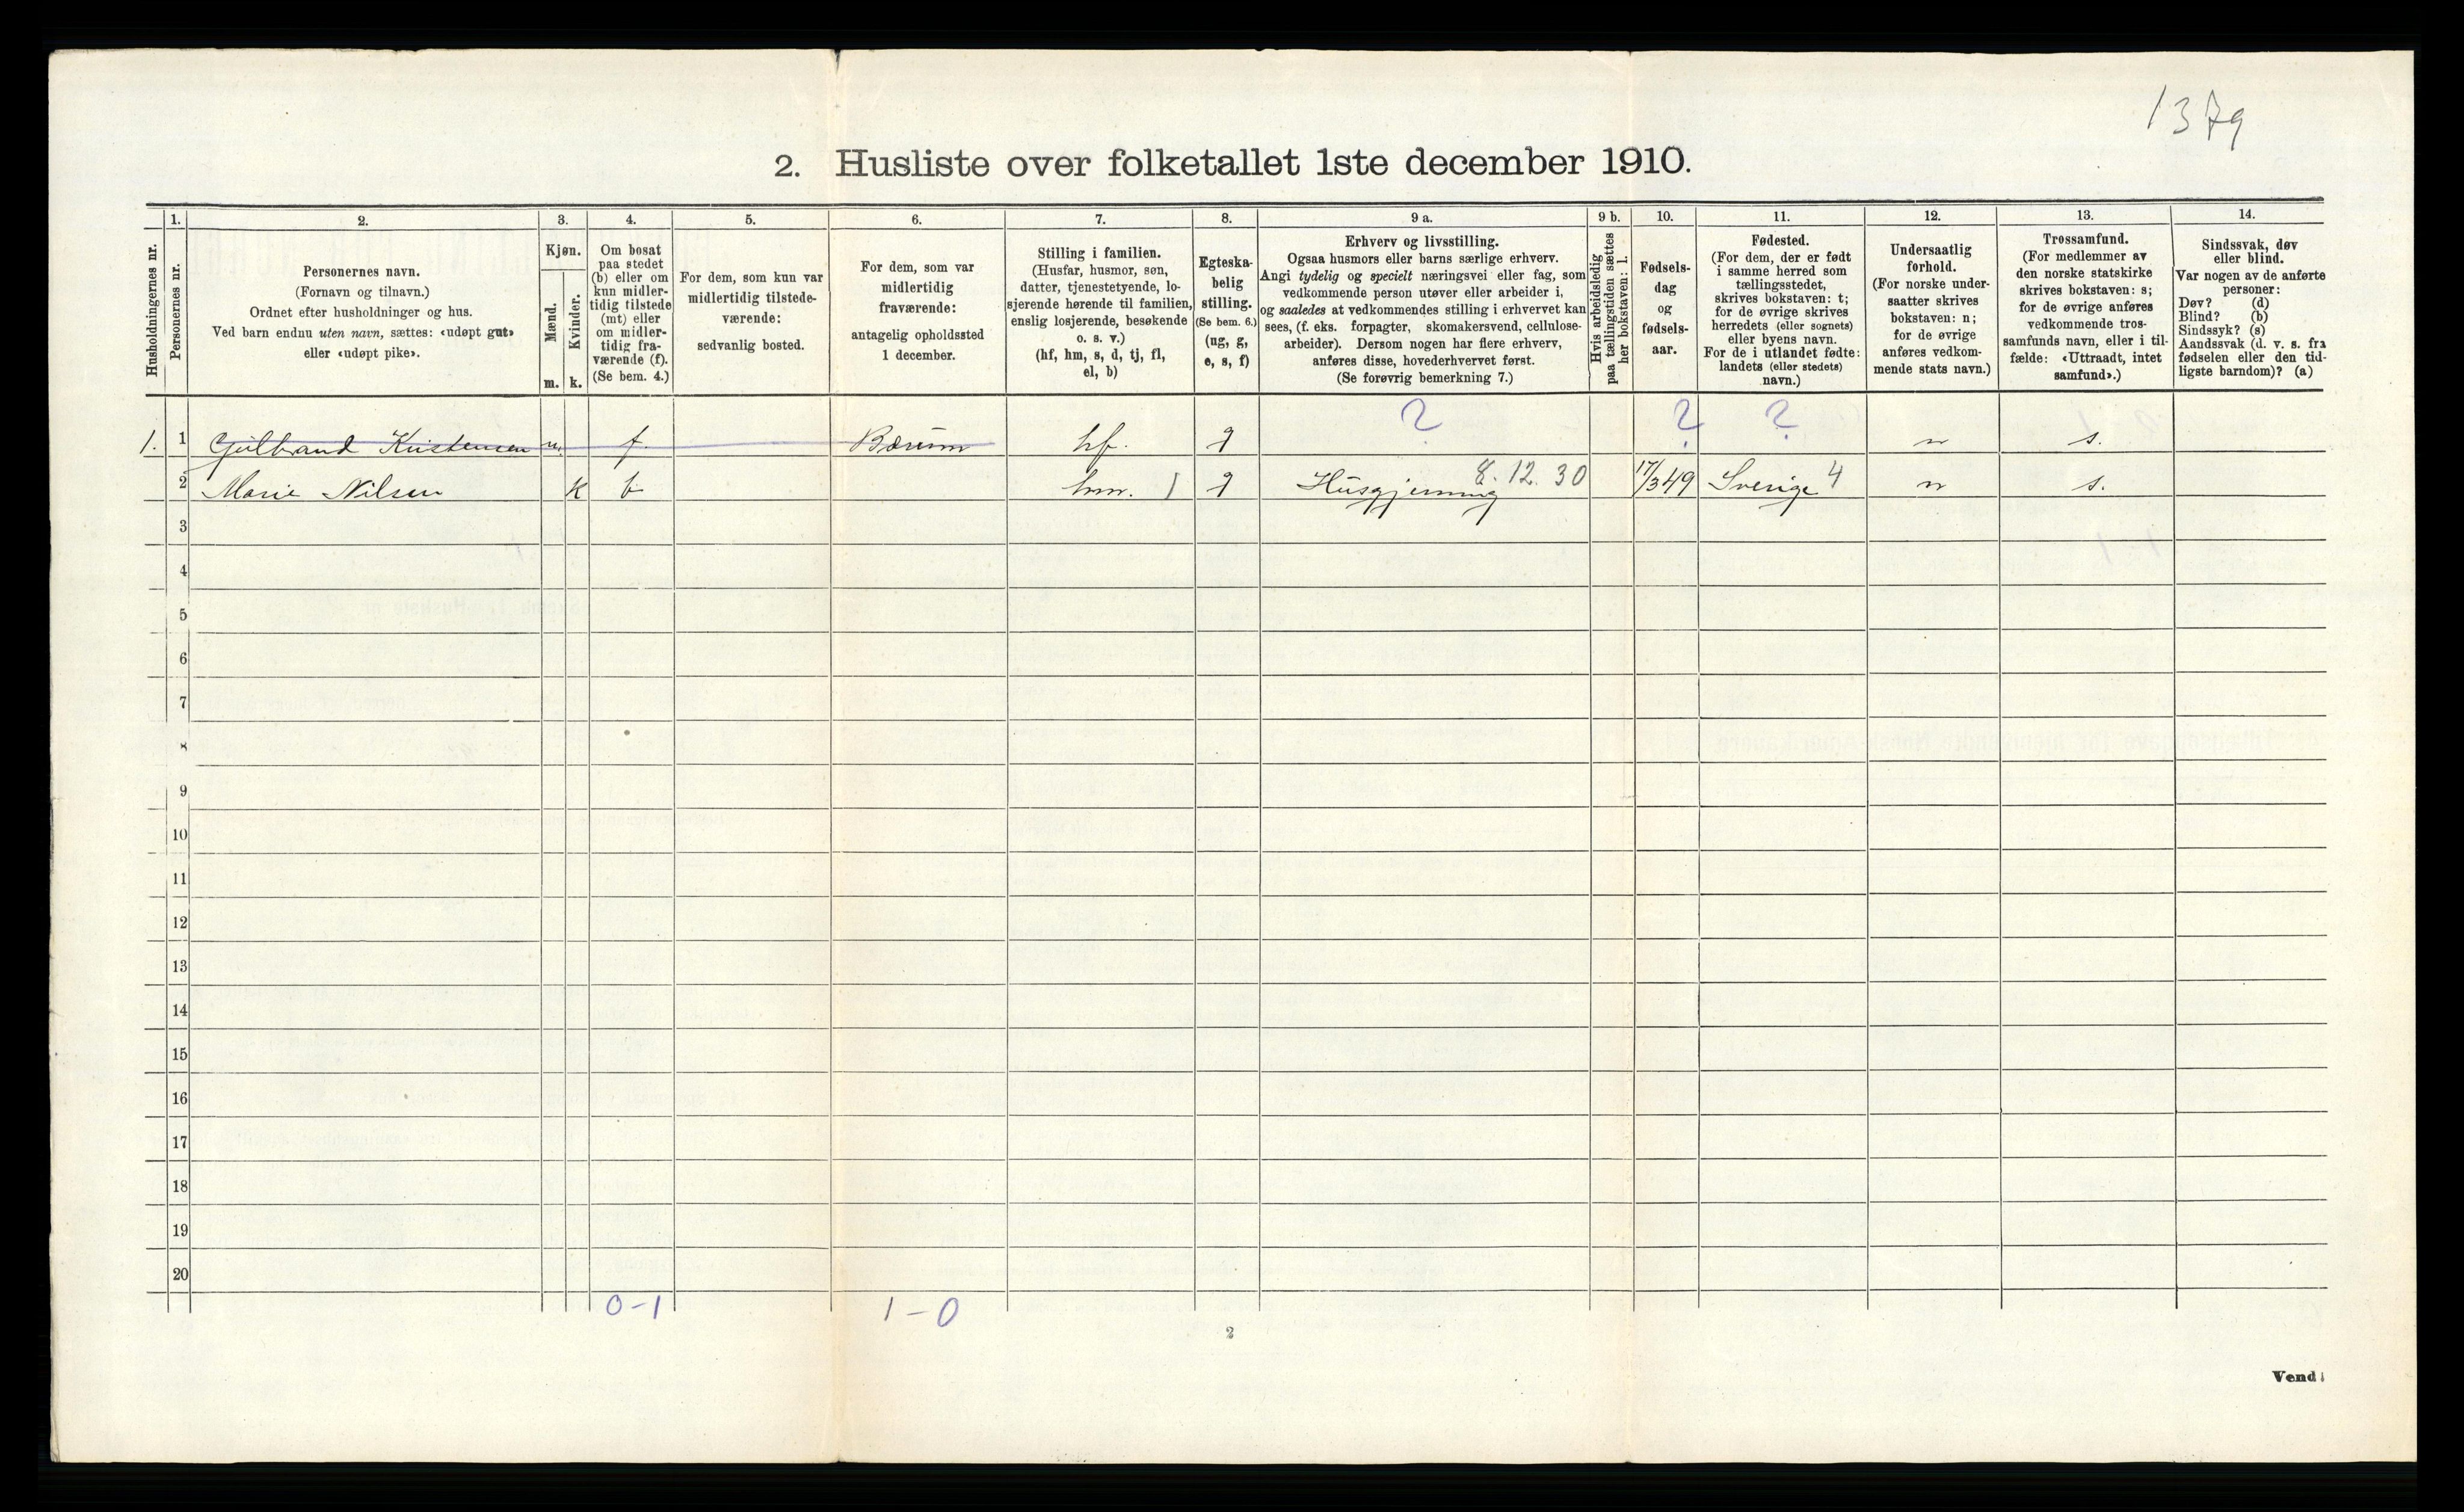 1379
2. Husliste over folketallet 1ste december 1910.
Husholdningernes nr.
1.
Personernes nr.
2.
Personernes navn.
(Fornavn og tilnavn.)
Ordnet efter husholdninger og hus.
Ved barn endnu uten navn, sættes: «udøpt gut»
eller «udøpt pike».
3.
Kjøn.
Mænd.
Kvinder.
m. k.
4.
Om bosat
paa stedet
(b) eller om
kun midler-
tidig tilstede
(mt) eller
om midler-
tidig fra-
værende (f).
(Se bem. 4.)
5.
For dem, som kun var
midlertidig tilstede-
værende:
sedvanlig bosted.
6.
For dem, som var
midlertidig
fraværende:
antagelig opholdssted
1 december.
7.
Stilling i familien.
(Husfar, husmor, søn,
datter, tjenestetyende, lo-
sjerende hørende til familien,
enslig losjerende, besøkende
o. s. v.)
(hf, hm, s, d, tj, fl,
el, b)
8.
Egteska-
belig
stilling.
(Se bem. 6.)
(ug, g,
e, s, f)
9 a.
Erhverv og livsstilling.
Ogsaa husmors eller barns særlige erhverv.
Angi tydelig og specielt næringsvei eller fag, som
vedkommende person utøver eller arbeider i,
og saaledes at vedkommendes stilling i erhvervet kan
sees, (f. eks. forpagter, skomakersvend, cellulose-
arbeider). Dersom nogen har flere erhverv,
anføres disse, hovederhvervet først.
(Se forøvrig bemerkning 7.)
9 b.
Hvis arbeidsledig
paa tællingstiden sættes
her bokstaven: l.
10.
Fødsels-
dag
og
fødsels-
aar.
11.
Fødested.
(For dem, der er født
i samme herred som
tællingsstedet,
skrives bokstaven: t;
for de øvrige skrives
herredets (eller sognets)
eller byens navn.
For de i utlandet fødte:
landets (eller stedets)
navn.)
12.
Undersaatlig
forhold.
(For norske under-
saatter skrives
bokstaven: n;
for de øvrige
anføres vedkom-
mende stats navn.)
13.
Trossamfund.
(For medlemmer av
den norske statskirke
skrives bokstaven: s;
for de øvrige anføres
vedkommende tros-
samfunds navn, eller i til-
fælde: «Uttraadt, intet
samfund».)
14.
Sindssvak, døv
eller blind.
Var nogen av de anførte
personer:
Døv? (d)
Blind? (b)
Sindssyk? (s)
Aandssvak (d. v. s. fra
fødselen eller den tid-
ligste barndom)? (a)
1. 1 Gulbrand Kristensen m. f. Bærum hf. g ? ? ? n s.
2 Marie Nilsen k b hm. 1 g Husgjerning 8.12.30 17/3 49 Sverige 4 n s.
3
4
5
6
7
8
9
10
11
12
13
14
15
16
17
18
19
20
0-1 1-0
2
Vend!